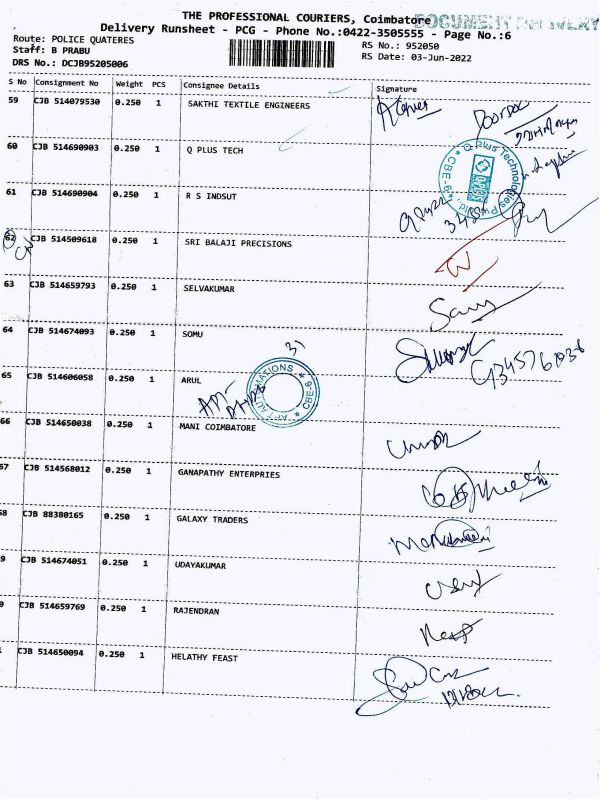 THE PROFESSIONAL COURIERS, Coimbatore
Delivery Runsheet - PCG - Phone No.:0422-3505555 - Page No.:6
Route: POLICE QUATERES
RS No.: 952050
Staff: B PRABU
RS Date: 03-Jun-2022
DRS No.: DCJB95205006
S No Consignment No Weight PCS Consignee Details Signature
59 CJB 514079530 0.250 1 SAKTHI TEXTILE ENGINEERS
60 CJB 514690903 0.250 1 Q PLUS TECH
Q Plus Technologies Pvt. Ltd., ★ CBE-6. ★
61 CJB 514690904 0.250 1 R S INDSUT
62 CJB 514509618 0.250 1 SRI BALAJI PRECISIONS
63 CJB 514659793 0.250 1 SELVAKUMAR
64 CJB 514674093 0.250 1 SOMU
65 CJB 514606058 0.250 1 ARUL
APT AUTOMATIONS ★ CBE-6 ★
66 CJB 514650038 0.250 1 MANI COIMBATORE
67 CJB 514568012 0.250 1 GANAPATHY ENTERPRIES
68 CJB 88380165 0.250 1 GALAXY TRADERS
9 CJB 514674051 0.250 1 UDAYAKUMAR
0 CJB 514659769 0.250 1 RAJENDRAN
CJB 514650094 0.250 1 HELATHY FEAST